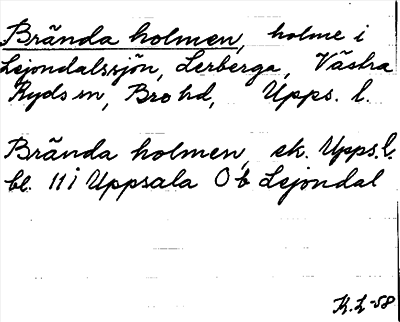 Brända holmen, holme i
Lejondalssjön, Lerberga, Västra
Ryds sn, Bro hd, Upps. l.
Brända holmen, ek. Upps. l.
bl. 11 i Uppsala Ob Lejondal
K.L-58